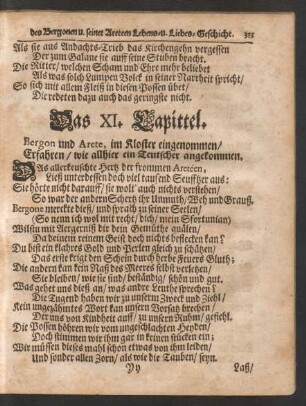 des Bergonen u. seiner Areten Lebens- u. Liebes-Geschicht. 353
Als sie aus Andachts-Trieb das Kirchengehn vergessen
Der zum Galane sie auff seine Stuben bracht.
Die Ritter/ welchen Scham und Ehre mehr beliebet
Als was solch Lumpen Volck in seiner Narrheit spricht/
So sich mit allem Fleiß in diesen Possen übet/
Die redeten dazu auch das geringste nicht.
Das XI. Capittel.
Bergon und Arete, im Kloster eingenommen/
Erfahren/ wie allhier ein Teutscher angekommen.
Das allerkeuschte Hertz der frommen Areteen,
Ließ unterdessen doch viel tausend Seuffzer aus:
Sie hörte nicht darauff/ sie wolt' auch nichts verstehen/
So war der andern Schertz ihr Unmuth/ Weh und Grauß.
Bergone merckte dieß/ und sprach zu seiner Seelen/
(So nenn ich wol mit recht/ dich/ mein Sfortunian)
Wilstu mit Aergerniß dir dein Gemüthe quälen/
Da deinem reinem Geist doch nichts beflecken kan?
Du bist ein klahres Gold und Perlen gleich zu schätzen/
Das erste krigt den Schein durch herbe Feuers Gluth;
Die andern kan kein Naß des Meeres selbst verletzen/
Sie bleiben/ wie sie sind/ beständig/ schön und gut.
Was gehet uns dieß an/ was andre Leuthe sprechen?
Die Tugend haben wir zu unserm Zweck und Ziehl/
Kein ungezähmtes Wort kan unsern Vorsatz brechen/
Der uns von Kindheit auff/ zu unserm Ruhm/ gefiehl.
Die Possen höhren wir vom ungeschlachten Heyden/
Doch stimmen wir ihm gar in keinen stücken ein;
Wir müssen dieses mahl schon etwas von ihm leiden/
Und sonder allen Zorn/ als wie die Tauben/ seyn.
Yy Laß/